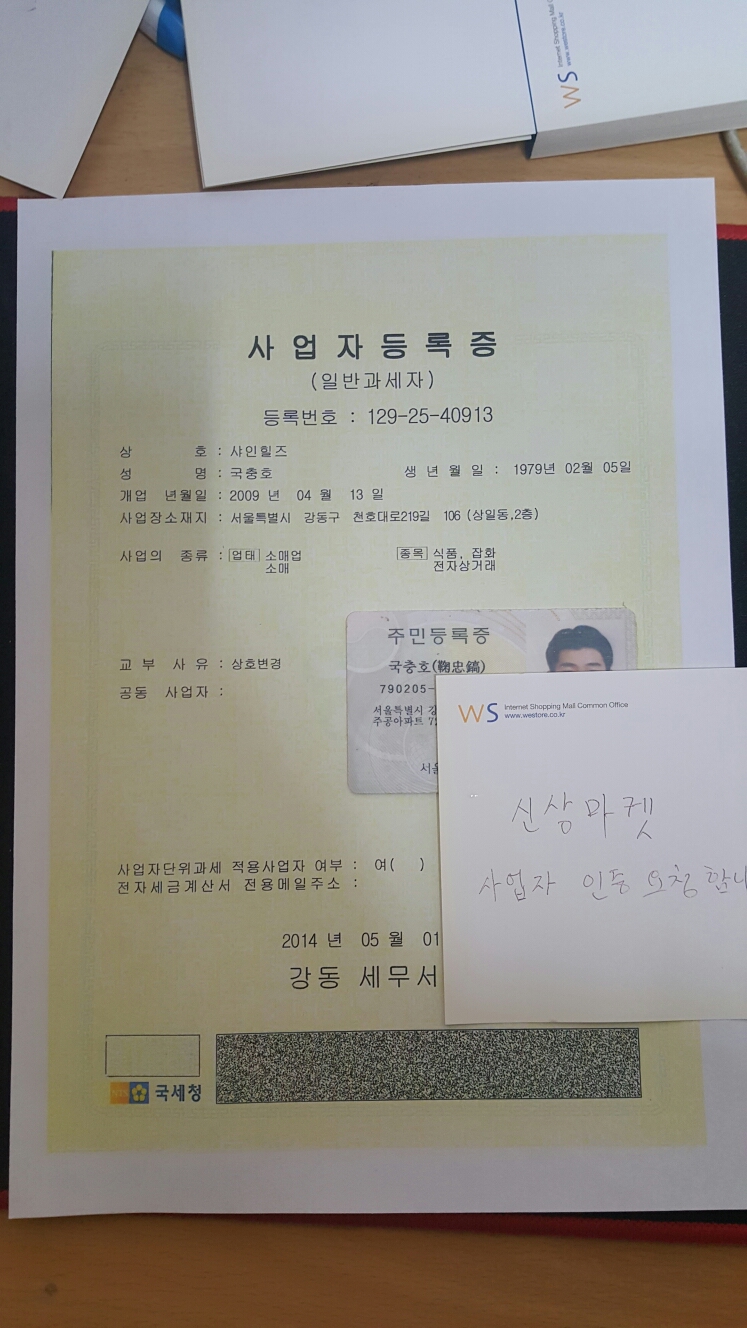 WS Internet Shopping Mall
www.westore.co.kr
사업자등록증
(일반과세자)
등록번호 : 129-25-40913
상 호 : 샤인힐즈
성 명 : 국충호 생 년 월 일 : 1979년 02월 05일
개업 년월일 : 2009 년 04 월 13 일
사업장소재지 : 서울특별시 강동구 천호대로219길 106 (상일동,2층)
사업의 종류 : 업태 소매업 종목 식품, 잡화
소매 전자상거래
주민등록증
교 부 사 유 : 상호변경
국충호(鞠忠鎬)
공동 사업자 :
790205-
서울특별시 강
주공아파트 7
서울
WS Internet Shopping Mall Common Office
www.westore.co.kr
신상마켓
사업자 인증 요청합니
사업자단위과세 적용사업자 여부 : 여( )
전자세금계산서 전용메일주소 :
2014 년 05 월 01
강동 세무서
NTS 국세청